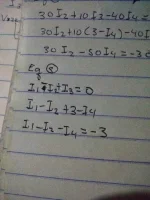 30I2+10I3-40I4=
30I2+10(3-I4)-40I
30I2-50I4=-30
Eq ③
I1-I2+I3=0
I1-I2+3-I4
I1-I2-I4=-3